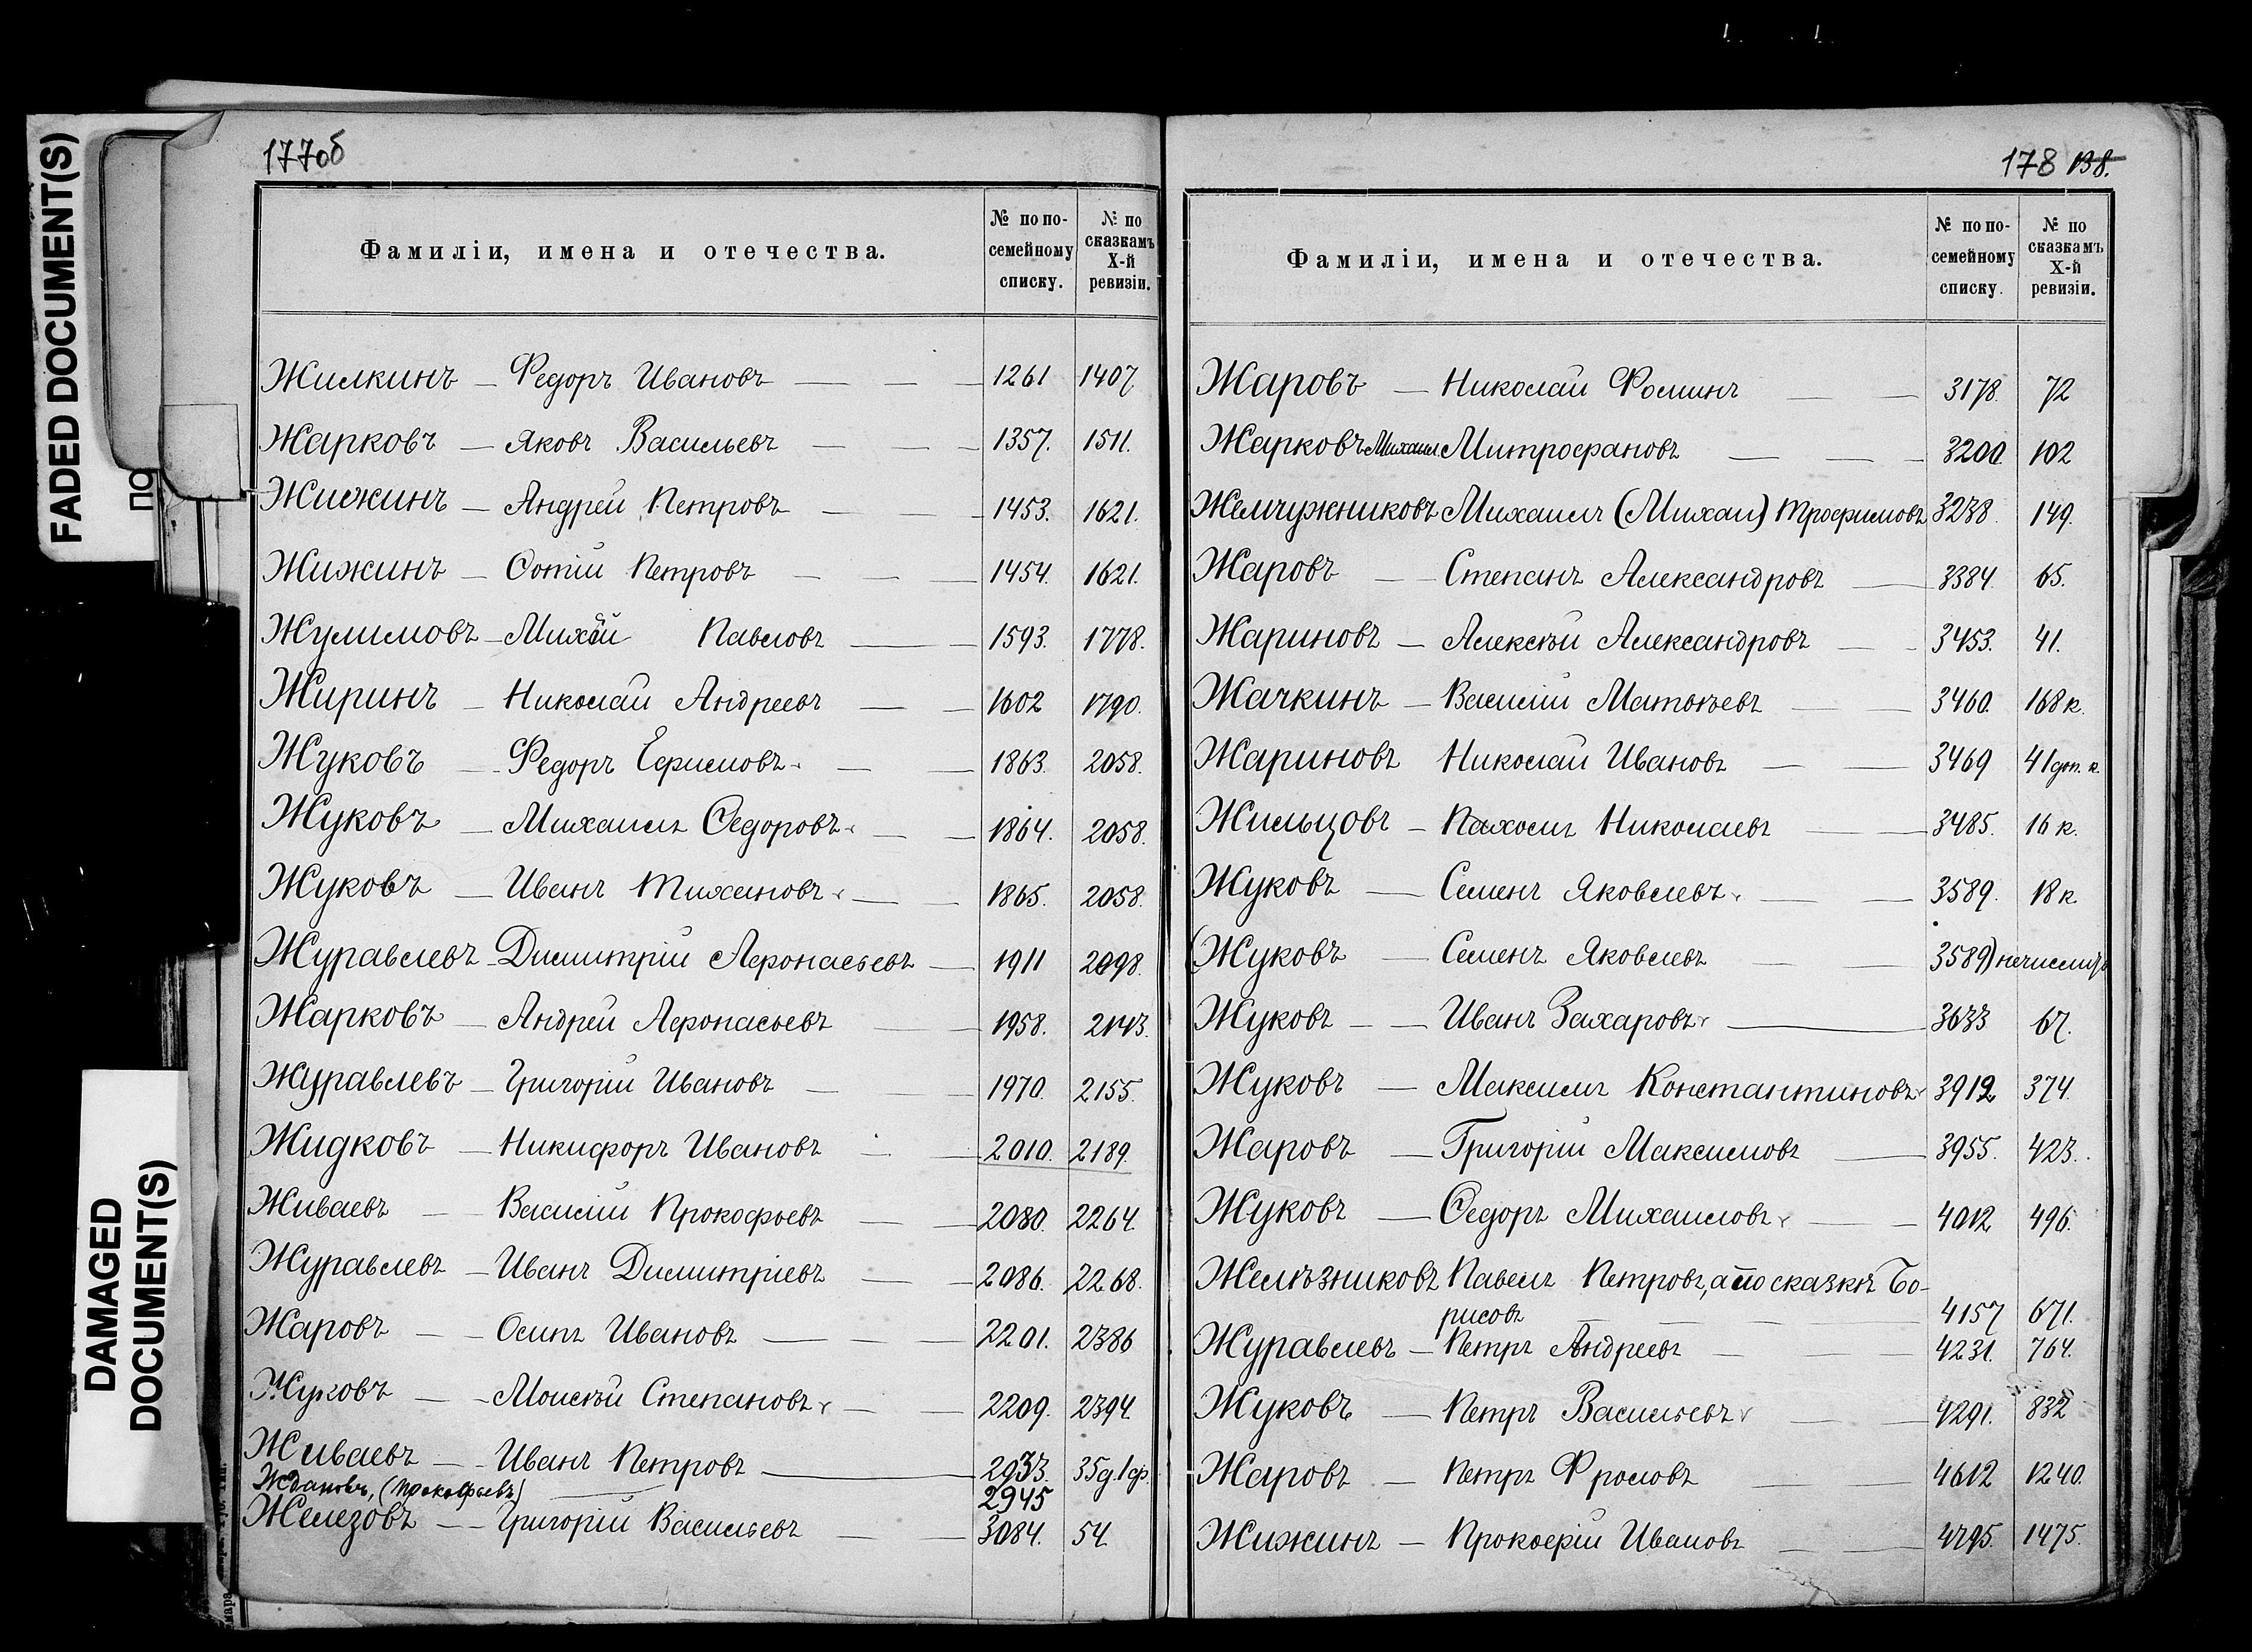 FADED DOCUMENT(S)
DAMAGED
DOCUMENT(S)
ПО
177об
Фамиліи, имена и отечества.
№ по по-
семейному
списку.
№ по
сказкамъ
X-й
ревизіи.
Жилкинъ — Федоръ Ивановъ — 1261 1407
Жарковъ — Яковъ Васильевъ — 1357. 1511.
Жижинъ — Андрей Петровъ — 1453. 1621.
Жижинъ — Фотій Петровъ — 1454. 1621.
Жулимовъ — Михай Павловъ — 1593. 1778.
Жиринъ — Николай Андреевъ — 1602 1790.
Жуковъ — Федоръ Ефимовъ — 1863. 2058.
Жуковъ — Михаилъ Федоровъ — 1864. 2058.
Жуковъ — Иванъ Тихановъ — 1865. 2058.
Журавлевъ — Димитрій Афонасьевъ — 1911 2098.
Жарковъ — Андрей Афонасьевъ — 1958. 2143.
Журавлевъ — Григорій Ивановъ — 1970. 2155.
Жидковъ — Никифоръ Ивановъ — 2010. 2189.
Живаевъ — Василій Прокофьевъ — 2080. 2264.
Журавлевъ — Иванъ Димитріевъ — 2086. 2268.
Жаровъ — Осипъ Ивановъ — 2201. 2386
Жуковъ — Моисѣй Степановъ — 2209. 2394.
Живаевъ — Иванъ Петровъ — 2933. 35д.1ф.
Ждановъ, (Прокофьевъ) — 2945
Железовъ — Григорій Васильевъ — 3084. 54.
178 138.
Фамиліи, имена и отечества.
№ по по-
семейному
списку.
№ по
сказкамъ
X-й
ревизіи.
Жаровъ — Николай Фоминъ — 3178. 72
Жарковъ Михаил. Митрофановъ — 3200. 102
Жемчужниковъ Михаилъ (Михаи) Трофимовъ 3238. 149.
Жаровъ — Степанъ Александровъ — 3384. 65.
Жариновъ — Алексѣй Александровъ — 3453. 41.
Жачкинъ — Василій Матвѣевъ — 3460. 168 к.
Жариновъ Николай Ивановъ — 3469 41 доп. к.
Жильцовъ — Пахомъ Николаевъ — 3485. 16 к.
Жуковъ — Семенъ Яковлевъ — 3589. 18 к.
(Жуковъ — Семенъ Яковлевъ — 3589)
Жуковъ — Иванъ Захаровъ — 3633 67.
Жуковъ — Максимъ Константиновъ 3912 374.
Жаровъ — Григорій Максимовъ — 3955. 423.
Жуковъ — Федоръ Михаиловъ — 4012 496.
Желѣзниковъ Павелъ Петровъ, а по сказкѣ Бо-
рисовъ — 4157 671.
Журавлевъ — Петръ Андреевъ — 4231. 764.
Жуковъ — Петръ Васильевъ — 4291. 832
Жаровъ — Петръ Фроловъ — 4612 1240.
Жижинъ — Прокофій Ивановъ — 4795. 1475.